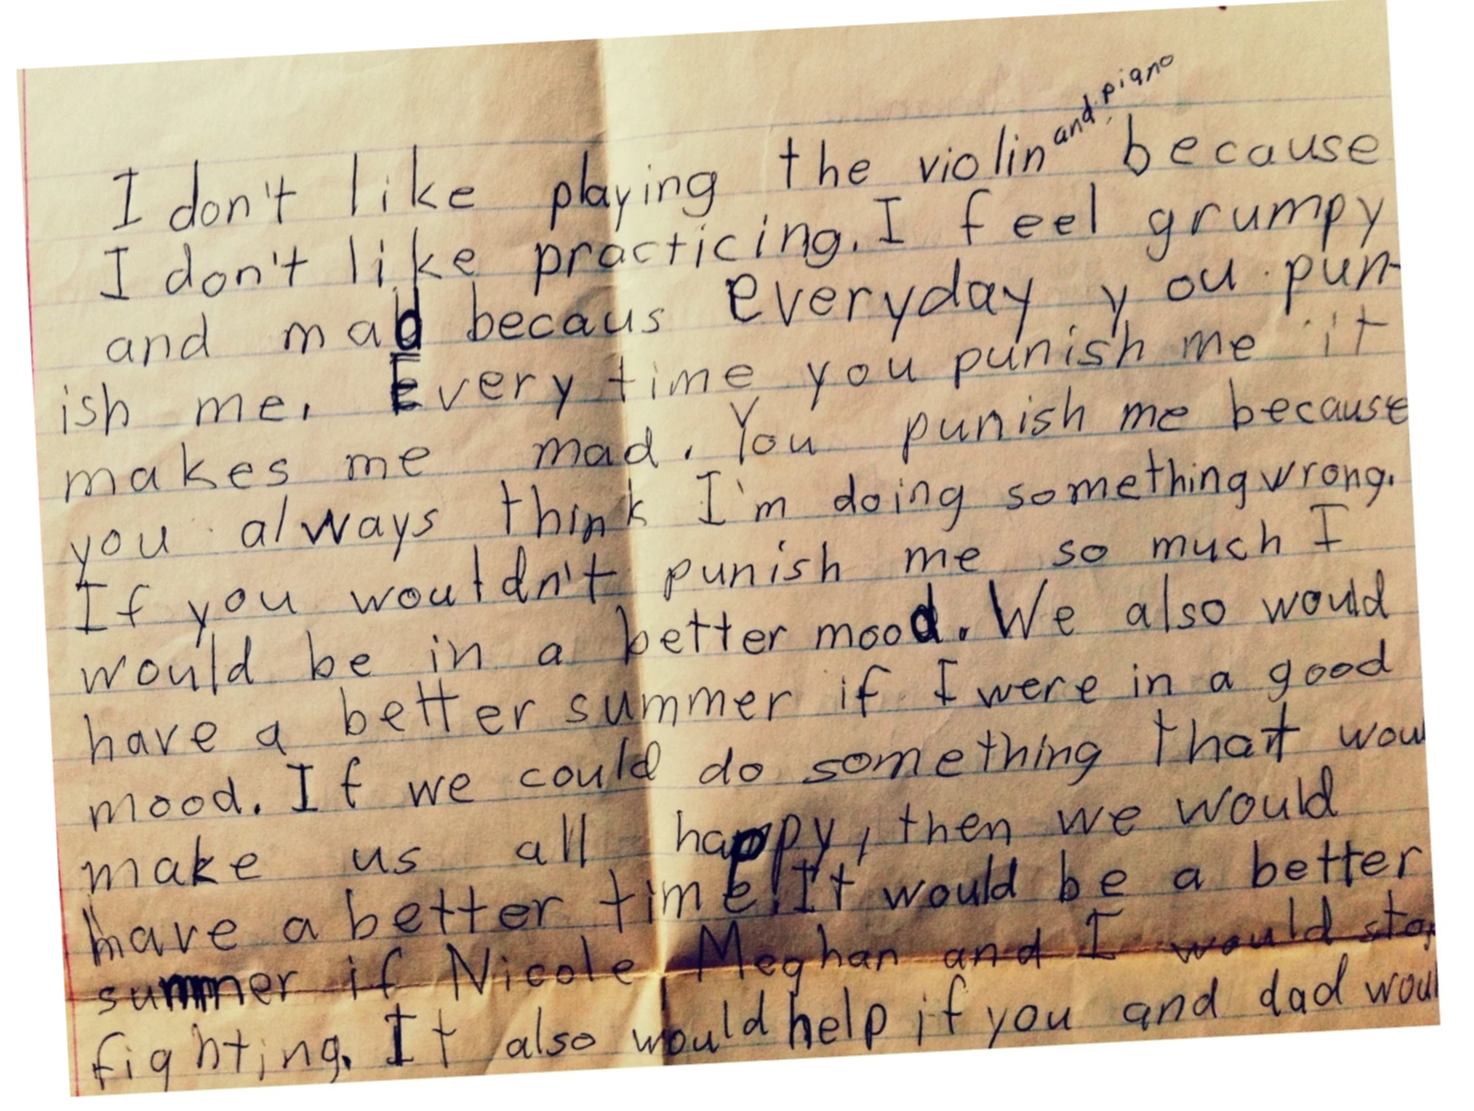 I don't like playing the violin and piano because
I don't like practicing. I feel grumpy
and mad becaus everyday you pun-
ish me. Every time you punish me it
makes me mad. You punish me because
you always think I'm doing something wrong.
If you wouldn't punish me so much I
would be in a better mood. We also would
have a better summer if I were in a good
mood. If we could do something that wou
make us all happy, then we would
have a better time. It would be a better
summer if Nicole Meghan and I would stop
fighting. It also would help if you and dad woul